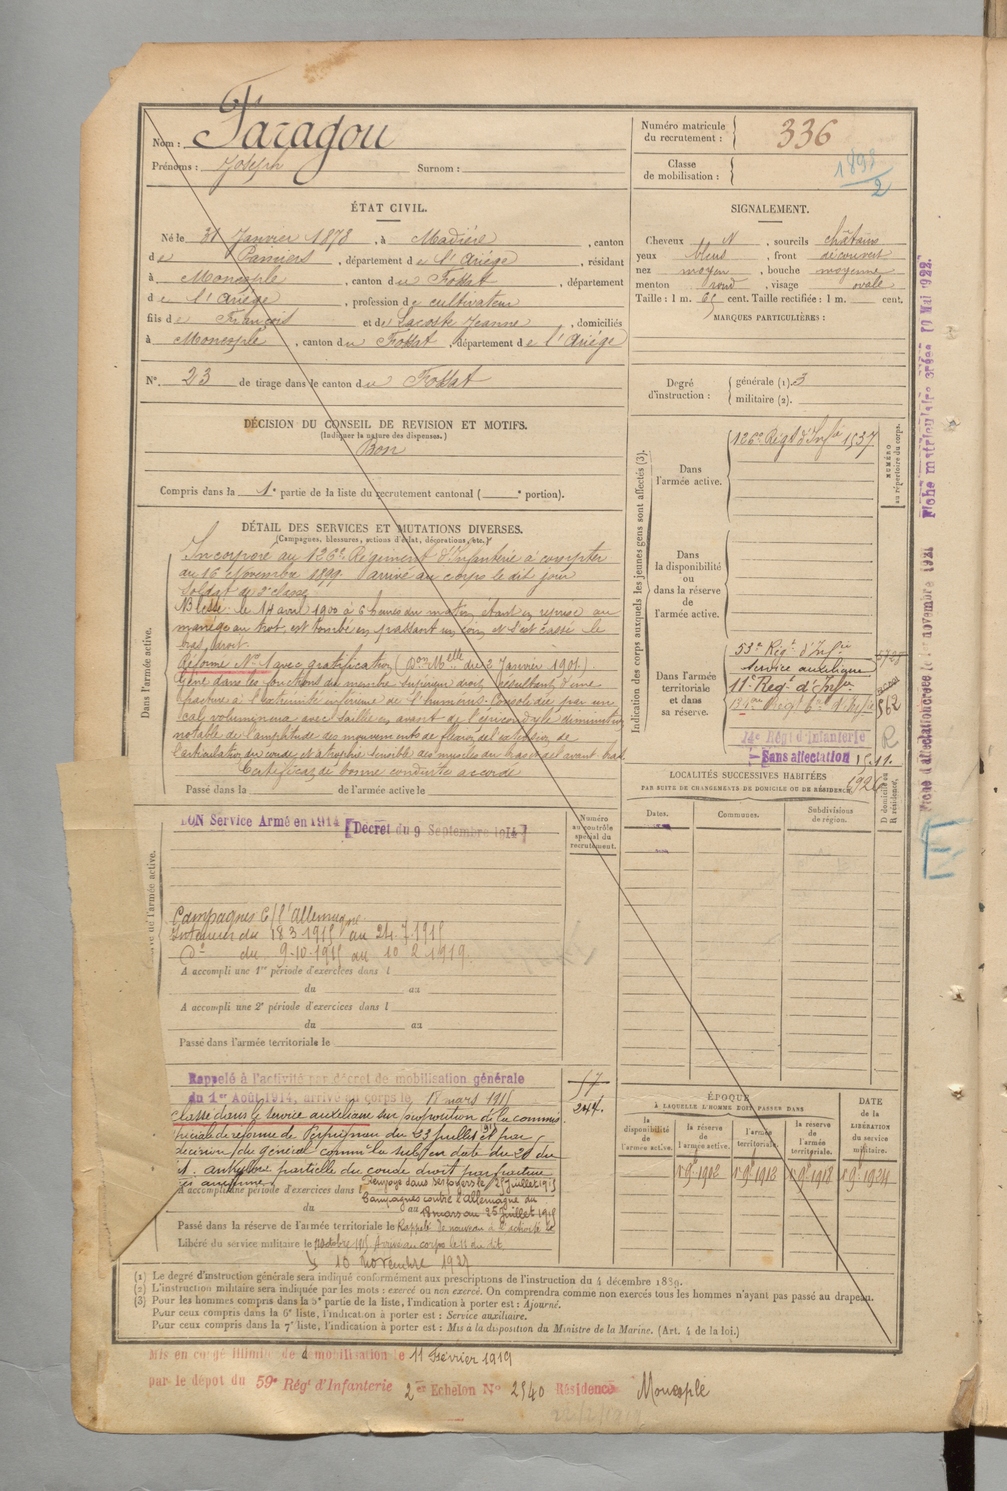 Nom : Faragou
Prénoms : Joseph Surnom :
Numéro matricule du recrutement : 336
Classe de mobilisation : 1898/2
ÉTAT CIVIL.
Né le 31 Janvier 1878, à Madière, canton
de Pamiers, département de l'Ariège, résidant
à Monesple, canton du Fossat, département
de l'Ariège, profession de cultivateur
fils de François et de Lacoste Jeanne, domiciliés
à Monesple, canton du Fossat, département de l'Ariège
N° 23 de tirage dans le canton du Fossat
SIGNALEMENT.
Cheveux N, sourcils châtains
yeux bleus, front découvert
nez moyen, bouche moyenne
menton rond, visage ovale
Taille : 1 m. 65 cent. Taille rectifiée : 1 m. cent.
MARQUES PARTICULIÈRES :
Degré d'instruction : générale (1). 3
militaire (2).
DÉCISION DU CONSEIL DE REVISION ET MOTIFS.
(Indiquer la nature des dispenses.)
Bon
Compris dans la 1e partie de la liste du recrutement cantonal ( e portion).
DÉTAIL DES SERVICES ET MUTATIONS DIVERSES.
(Campagnes, blessures, actions d'éclat, décorations, etc.)
Dans l'armée active.
Incorporé au 126e Régiment d'Infanterie à compter
du 16 Novembre 1899. Arrivé au corps le dit jour
soldat de 2e classe
Blessé le 14 avril 1900 à 6 heures du matin étant en reprise au
manège au trot est tombé en passant un coin et s'est cassé le
bras droit.
Réformé No 1 avec gratification (Don Melle du 2 Janvier 1901).
Gêne dans les fonctions du membre supérieur droit, résultant d'une
fracture à l'extrémité inférieure de l'humérus. Consolidée par un
cal volumineux avec saillie en avant de l'épicondyle diminution
notable de l'amplitude des mouvements de flexion de l'extension, de
l'articulation du coude, et atrophie sensible des muscles du bras et de l'avant bras
Certificat de bonne conduite accordé
Passé dans la de l'armée active le
BON Service Armé en 1914 [Décret du 9 Septembre 1914]
Numéro au contrôle spécial du recrutement.
Campagnes C/ l'Allemagne
Intérieur du 18.3.1915 au 24.7.1915
do du 9-10-1915 au 10 2 1919.
A accompli une 1re période d'exercices dans l
du au
A accompli une 2e période d'exercices dans l
du au
Passé dans l'armée territoriale le
Rappelé à l'activité par décret de mobilisation générale
du 1er Août 1914, arrivé au corps le 18 mars 1915
Classé dans le service auxiliaire sur proposition de la commis
spéciale de réforme de Perpignan du 23 juillet 1915 par
décision du général comm la subd en date du 24 du
. ankylose partielle du coude droit par fracture
ancienne
A accompli une période d'exercices dans l Renvoyé dans ses foyers le 25 juillet 1915
Campagnes contre l'Allemagne du
du au 18 mars au 25 Juillet 1915
Passé dans la réserve de l'armée territoriale le Rappelé de nouveau à l'activité le
Libéré du service militaire le octobre 1915 Arrivé au corps le 11 du dit
10 novembre 1927
Indication des corps auxquels les jeunes gens sont affectés (3).
Dans l'armée active. 126e Régt d'Infie 1537
NUMÉRO au répertoire du corps.
Dans la disponibilité ou dans la réserve de l'armée active.
Dans l'armée territoriale et dans sa réserve.
53e Régt d'Infie
service auxiliaire
11e Régt d'Inf.
562
14e Régt d'Infanterie
Sans affectation
LOCALITÉS SUCCESSIVES HABITÉES
PAR SUITE DE CHANGEMENTS DE DOMICILE OU DE RÉSIDENCE.
Dates. Communes. Subdivisions de région. D domicile ou R résidence.
ÉPOQUE
À LAQUELLE L'HOMME DOIT PASSER DANS
la disponibilité de l'armée active. la réserve de l'armée active. l'armée territoriale. la réserve de l'armée territoriale. DATE de la LIBÉRATION du service militaire.
1 9bre 1902 1 9bre 1912 1 9bre 1918 1 9bre 1924
(1) Le degré d'instruction générale sera indiqué conformément aux prescriptions de l'instruction du 4 décembre 1889.
(2) L'instruction militaire sera indiquée par les mots : exercé ou non exercé. On comprendra comme non exercés tous les hommes n'ayant pas passé au drapeau.
(3) Pour les hommes compris dans la 5e partie de la liste, l'indication à porter est : Ajourné.
Pour ceux compris dans la 6e liste, l'indication à porter est : Service auxiliaire.
Pour ceux compris dans la 7e liste, l'indication à porter est : Mis à la disposition du Ministre de la Marine. (Art. 4 de la loi.)
Mis en congé illimité de démobilisation le 11 Février 1919
par le dépôt du 59e Régt d'Infanterie 2e Echelon No 2540 Résidence Monesple
Fiche matriculaire créée 10 Mai 1922.
Fiche d'affectation créée le novembre 1921